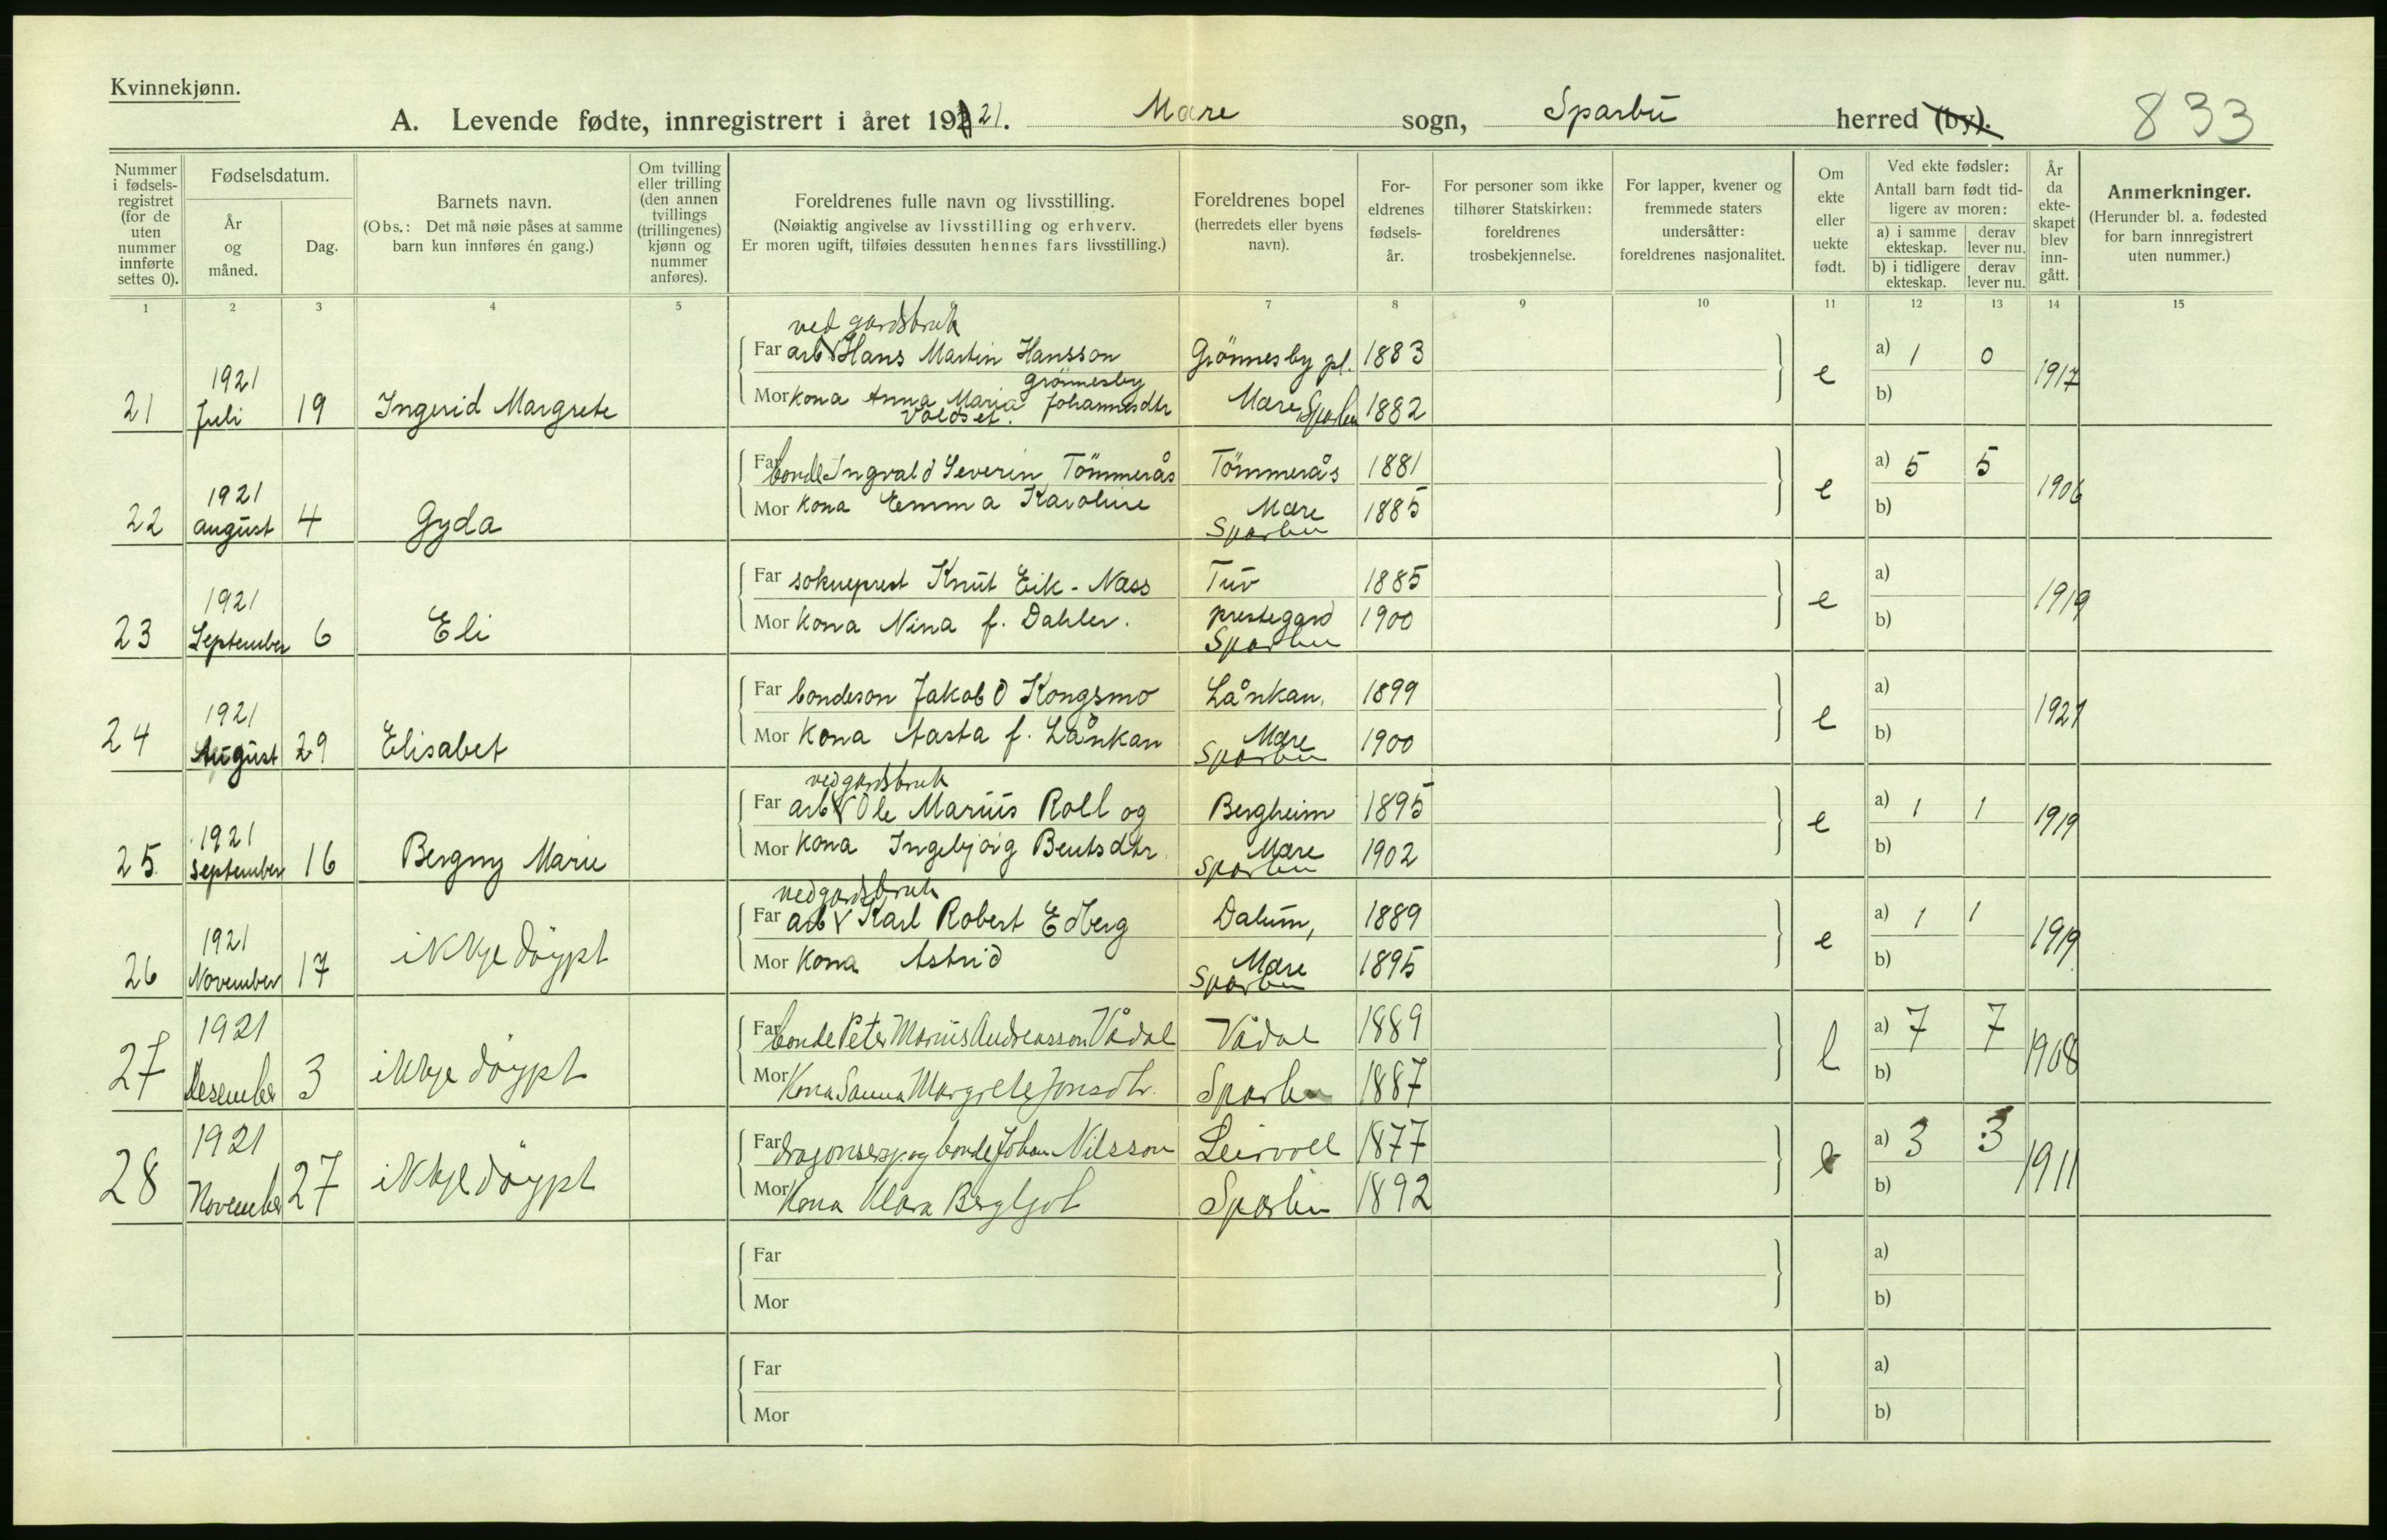 Kvinnekjønn.
A. Levende fødte, innregistrert i året 1921. Mære sogn, Sparbu herred (by). 833
Nummer i fødsels-registret (for de uten nummer innførte settes 0).
Fødselsdatum.
År og måned.
Dag.
Barnets navn.
(Obs.: Det må nøie påses at samme barn kun innføres én gang.)
Om tvilling eller trilling (den annen tvillings (trillingenes) kjønn og nummer anføres).
Foreldrenes fulle navn og livsstilling.
(Nøiaktig angivelse av livsstilling og erhverv.
Er moren ugift, tilføies dessuten hennes fars livsstilling.)
Foreldrenes bopel
(herredets eller byens navn).
For-eldrenes fødsels-år.
For personer som ikke tilhører Statskirken: foreldrenes trosbekjennelse.
For lapper, kvener og fremmede staters undersåtter: foreldrenes nasjonalitet.
Om ekte eller uekte født.
Ved ekte fødsler:
Antall barn født tid-ligere av moren:
a) i samme ekteskap. derav lever nu.
b) i tidligere ekteskap. derav lever nu.
År da ekte-skapet blev inn-gått.
Anmerkninger.
(Herunder bl. a. fødested for barn innregistrert uten nummer.)
1 2 3 4 5 6 7 8 9 10 11 12 13 14 15
ved gardsbruk
Far arb Hans Martin Hansson Grönnesby pl. 1883 a) 1 0
Grönnesby
21 1921 Juli 19 Ingerid Margrete Mor kona Anna Maria Johannesdtr Mære Sparbu 1882 e b) 1917
Valdset.
Far bonde Ingvald Severin Tömmerås Tömmerås 1881 a) 5 5
22 1921 august 4 Gyda Mor kona Emma Karoline Mære Sparbu 1885 e b) 1906
Far sokneprest Knut Eik-Næss Tuv 1885 a)
23 1921 September 6 Eli Mor kona Nina f. Dahler. prestegard Sparbu 1900 e b) 1919
Far bondeson Jakob O Kongsmo Lånkan, 1899 a)
24 1921 August 29 Elisabet Mor kona Aasta f. Lånkan Mære Sparbu 1900 e b) 1921
ved gardsbruk
Far arb Ole Marius Roll og Bergheim 1895 a) 1 1
25 1921 September 16 Bergny Marie Mor kona Ingebjörg Bentsdtr. Mære Sparbu 1902 e b) 1919
ved gardsbruk
Far arb Karl Robert Edberg Dalum, 1889 a) 1 1
26 1921 November 17 ikkje döypt Mor kona Astrid Mære Sparbu 1895 e b) 1919
Far bonde Peter Marius Andreasson Vådal Vådal 1889 a) 7 7
27 1921 Desember 3 ikkje döypt Mor Kona Sanna Margrete Jonsdtr. Sparbu 1887 e b) 1908
Far dragonsersj og bonde Johan Nilsson Leirvoll 1877 a) 3 3
28 1921 November 27 ikkje döypt Mor Kona Klara Bergljot Sparbu 1892 e b) 1911
Far a)
Mor b)
Far a)
Mor b)